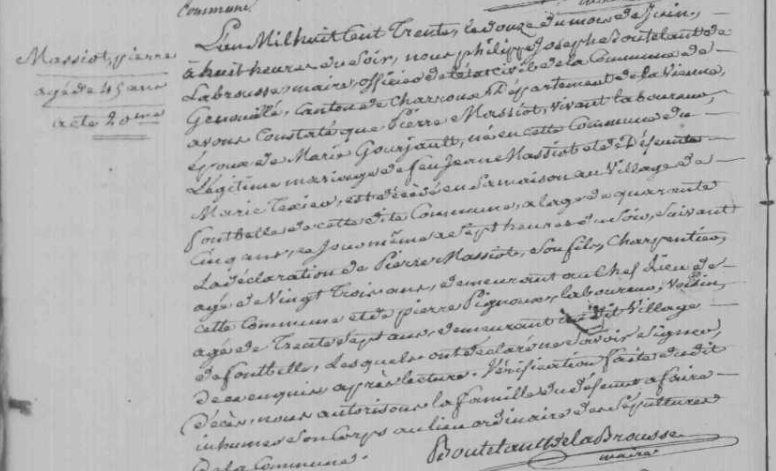 Commune.
Massiot, pierre
agé de 45 ans
acte 20me
L'an Mil huit Cent Trente, le douze du mois de juin,
à huit heures du soir, nous philippe Joseph Boutelaud de
Labrousse, maire, officier de l'état civil de la Commune de
Genouillé, Canton de Charroux Département de la Vienne,
avons Constaté que Pierre Massiot, vivant laboureur,
époux de Marie Gourjault, né en cette Commune du
Légitime mariage de feu Jean Massiot et de Défunte
Marie Texier, est décédé en sa maison au Village de
fontbelle de cette dite Commune, à l'age de quarante
Cinq ans, ce jour même à Sept heures du soir, Suivant
La déclaration de Pierre Massiot, Son fils, Charpentier,
agé de Vingt Trois ans, demeurant au Chef lieu de
cette Commune et de pierre Pignoux, laboureur, Voisin,
agé de Trente Sept ans, demeurant au dit Village
de fontbelle, Lesquels ont déclaré ne Savoir Signer,
de ce enquis après lecture. Vérification faite du dit
Décès, nous autorisons la famille du défunt à faire
inhumer Son Corps au lieu ordinaire des Sépultures
De la Commune.
Boutelaud de la Brousse
maire